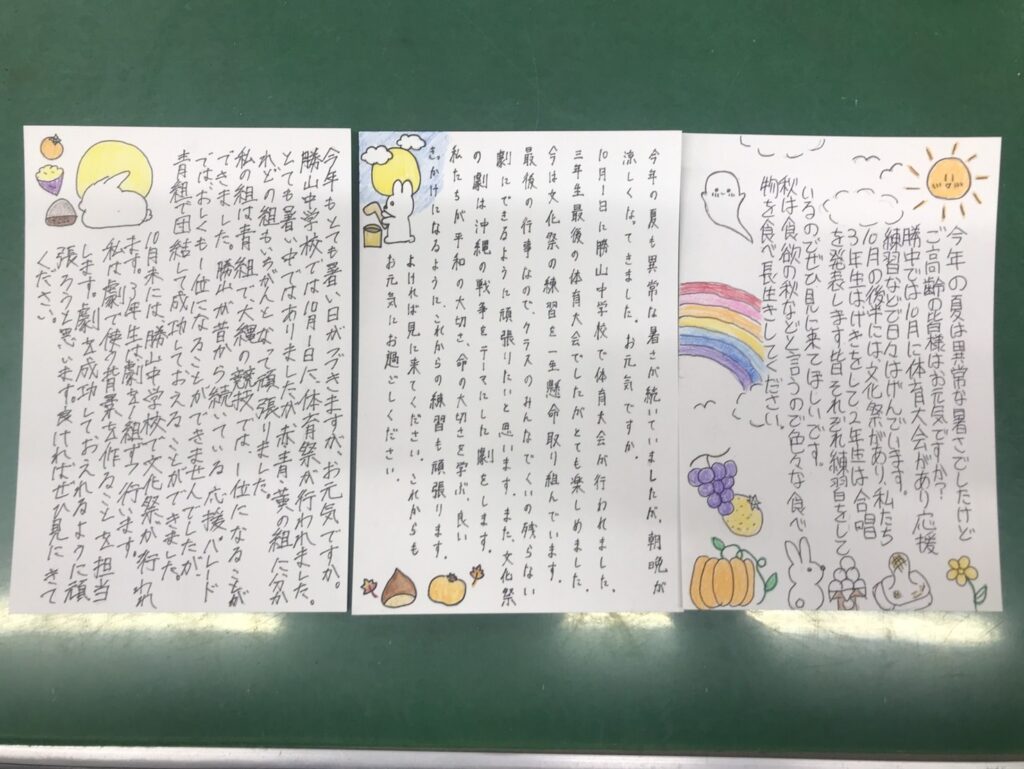 今年の夏は異常な暑さでしたけど
ご高齢の皆様はお元気ですか?
勝中では10月に体育大会があり応援
練習などで日々はげんでいます。
10月の後半には、文化祭があり、私たち
3年生はげきをして2年生は合唱
を発表します皆それぞれ練習をして
いるのでぜひ見に来てほしいです。
秋は食欲の秋などと言うので色々な食べ
物を食べ長生きしてください。
今年の夏も異常な暑さが続いていましたが、朝晩が
涼しくなってきました。お元気ですか。
10月1日に勝山中学校で体育大会が行われました。
三年生最後の体育大会でしたがとても楽しめました。
今は文化祭の練習を一生懸命取り組んでいます。
最後の行事なので、クラスのみんなでくいの残らない
劇にできるように頑張りたいと思います。また、文化祭
の劇は沖縄の戦争をテーマにした劇をします。
私たちが平和の大切さ、命の大切さを学ぶ、良い
きっかけになるように、これからの練習も頑張ります。
よければ見に来てください。これからも
お元気にお過ごしください。
今年もとても暑い日がつづきますが、お元気ですか。
勝山中学校では10月1日に、体育祭が行われました。
とても暑い中ではありましたが、赤・青・黄の組に分か
れどの組もいちがんとなって頑張りました。
私の組は青組で、大縄の競技では、1位になることが
できました。勝山が昔から続いている応援・パレード
では、おしくも1位になることができませんでしたが
青組で団結して成功しておえることができました。
10月末には、勝山中学校で文化祭が行われ
ます。3年生は劇を1組ずつ行います。
私は劇で使う背景を作ることを担当
します。劇を成功しておえれるように頑
張ろうと思います。良ければぜひ見にきて
ください。